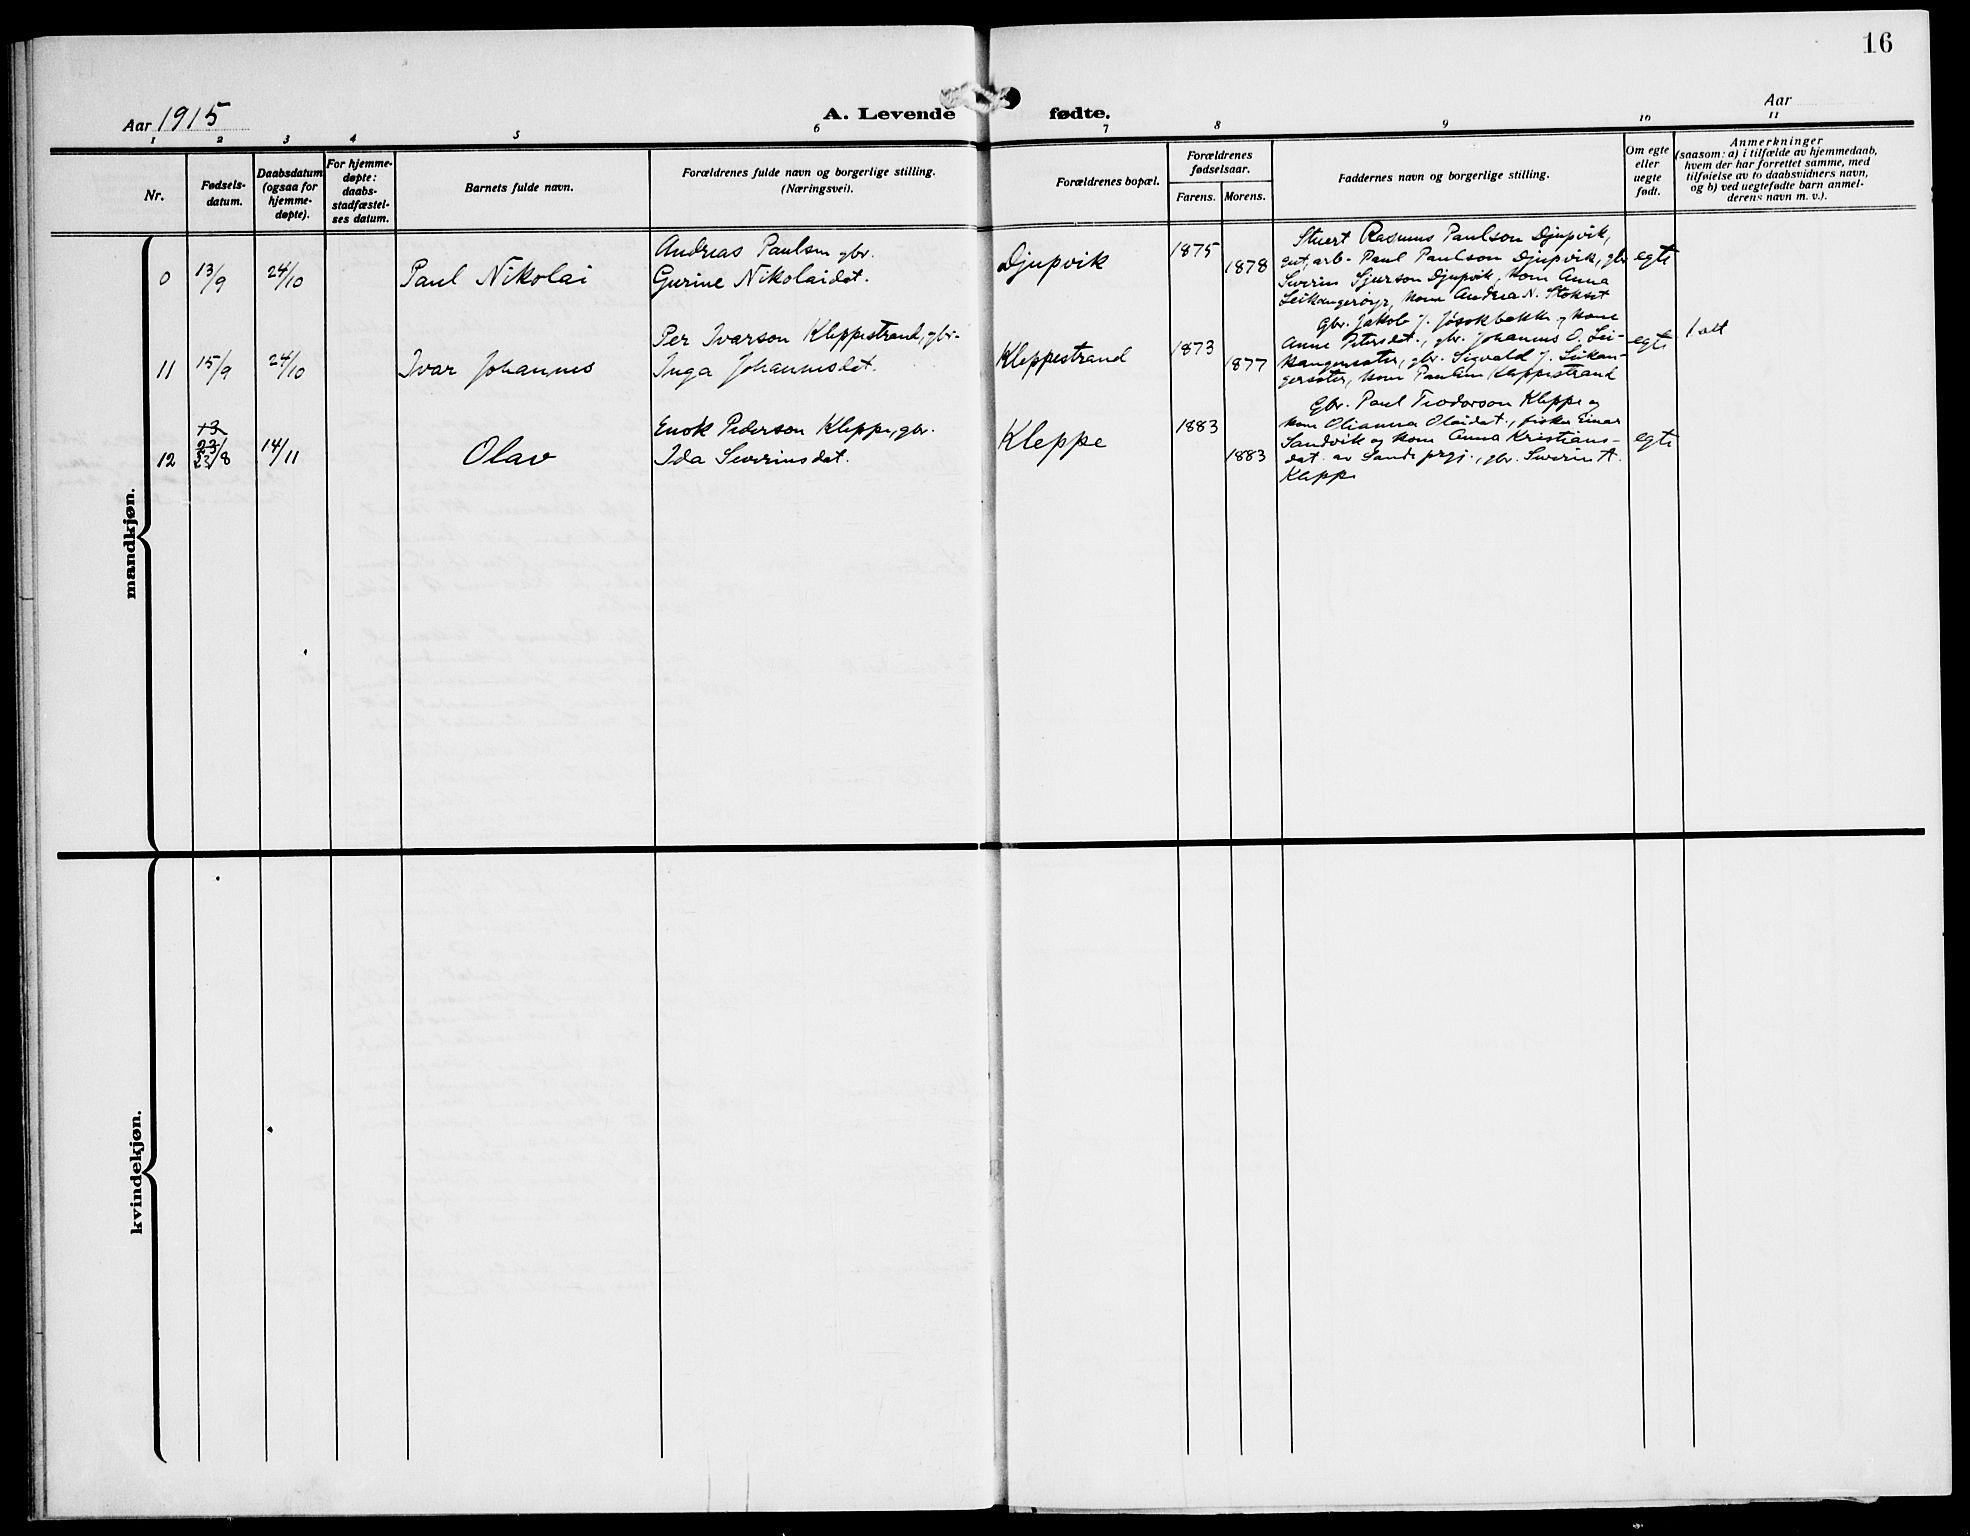 16
Aar 1915
A. Levende fødte.
Aar
1 2 3 4 5 6 7 8 9 10 11
Nr.
Fødsels-
datum.
Daabsdatum
(ogsaa for
hjemme-
døpte).
For hjemme-
døpte:
daabs-
stadfæstel-
ses datum.
Barnets fulde navn.
Forældrenes fulde navn og borgerlige stilling.
(Næringsvei).
Forældrenes bopæl.
Forældrenes
fødselsaar.
Farens. Morens.
Faddernes navn og borgerlige stilling.
Om egte
eller
uegte
født.
Anmerkninger
(saasom: a) i tilfælde av hjemmedaab,
hvem der har forrettet samme, med
tilføielse av to daabsvidners navn,
og b) ved uegtefødte barn anmel-
derens navn m. v.).
mandkjøn.
0 13/9 24/10 Paul Nikolai
Andreas Paulsen gbr.
Gurine Nikolaidat.
Djupvik
1875
1878
Stuert Rasmus Paulson Djupvik,
gut, arb. Paul Paulson Djupvik, gbr
Severin Sjurson Djupvik, kone Anna
Leikangerøyr, kone Andrea N. Stokset
egte
11 15/9 24/10 Ivar Johannes
Per Ivarson Kleppestrand, gbr.
Inga Johannesdat.
Kleppestrand
1873
1877
Gbr. Jakob J. Jøsokbakke og kone
Anne Petersdat., gbr. Johannes O. Lei-
kangersæter, gbr. Sigvald J. Leikan-
gersæter, kone Pauline Kleppestrand
egte
1 alt
12 13 23/8 23 14/11 Olav
Enok Pederson Kleppe, gbr.
Ida Severinsdat.
Kleppe
1883
1883
Gbr. Paul Teodorson Kleppe og
kone Olianna Olaidat., fisker Einar
Sandvik og kone Anna Kristians-
dat. av Sande prgj., gbr. Severin A.
Kleppe
egte
kvindekjøn.